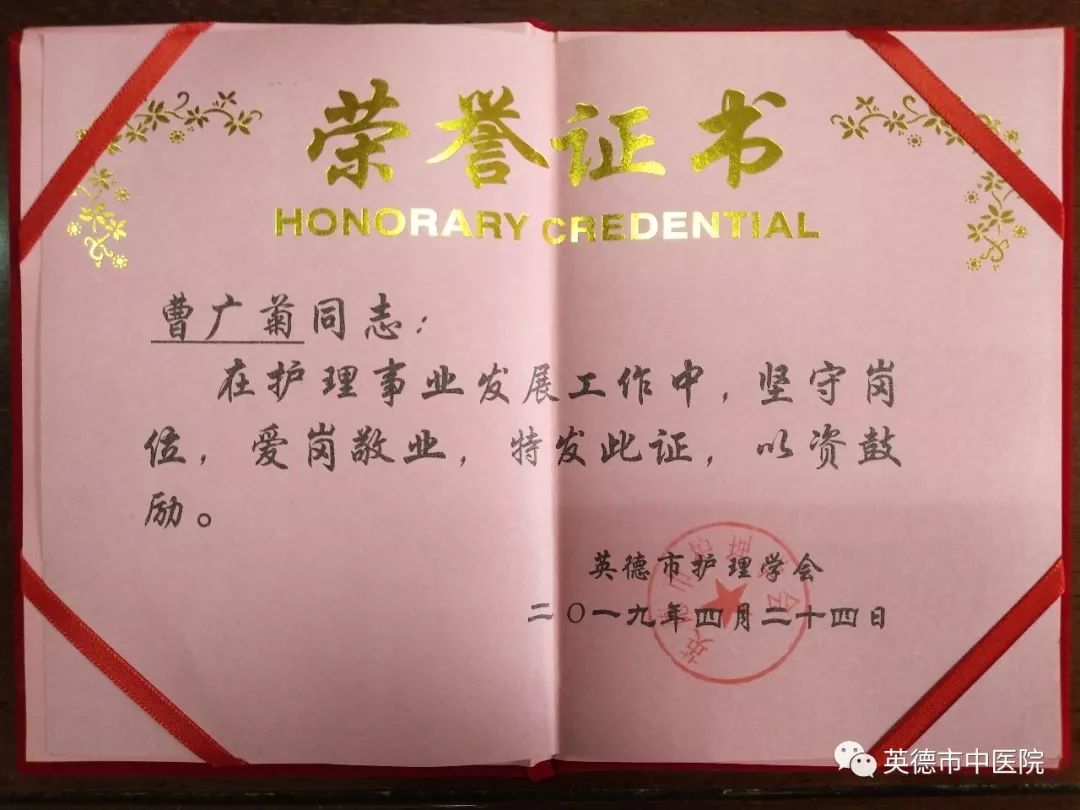 荣誉证书
HONORARY CREDENTIAL
曹广菊同志：
在护理事业发展工作中，坚守岗
位，爱岗敬业，特发此证，以资鼓
励。
英德市护理学会
二〇一九年四月二十四日
英德市中医院